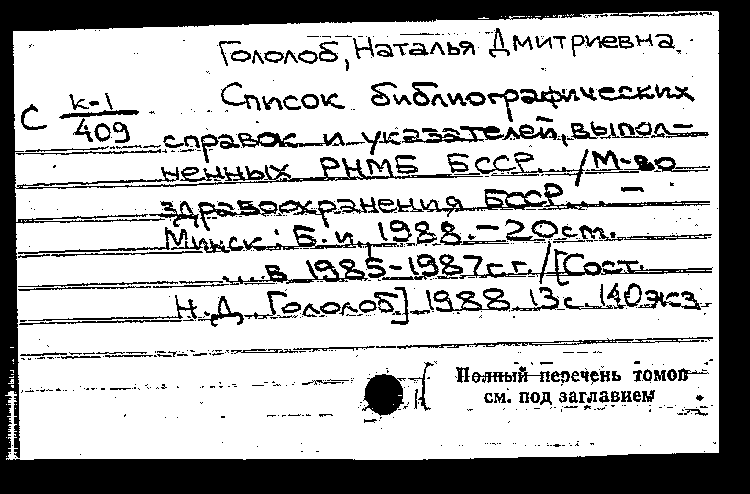 Гололоб, Наталья Дмитриевна.
Список библиографических
С к-1/409
справок и указателей, выпол-
ненных РНМБ БССР... / М-во
здравоохранения БССР... –
Минск: Б. и., 1988. – 20 см.
... в 1985-1987 г.г. / [Сост.
Н.Д. Гололоб] 1988. 13 с. 140 экз
Полный перечень томов
см. под заглавием